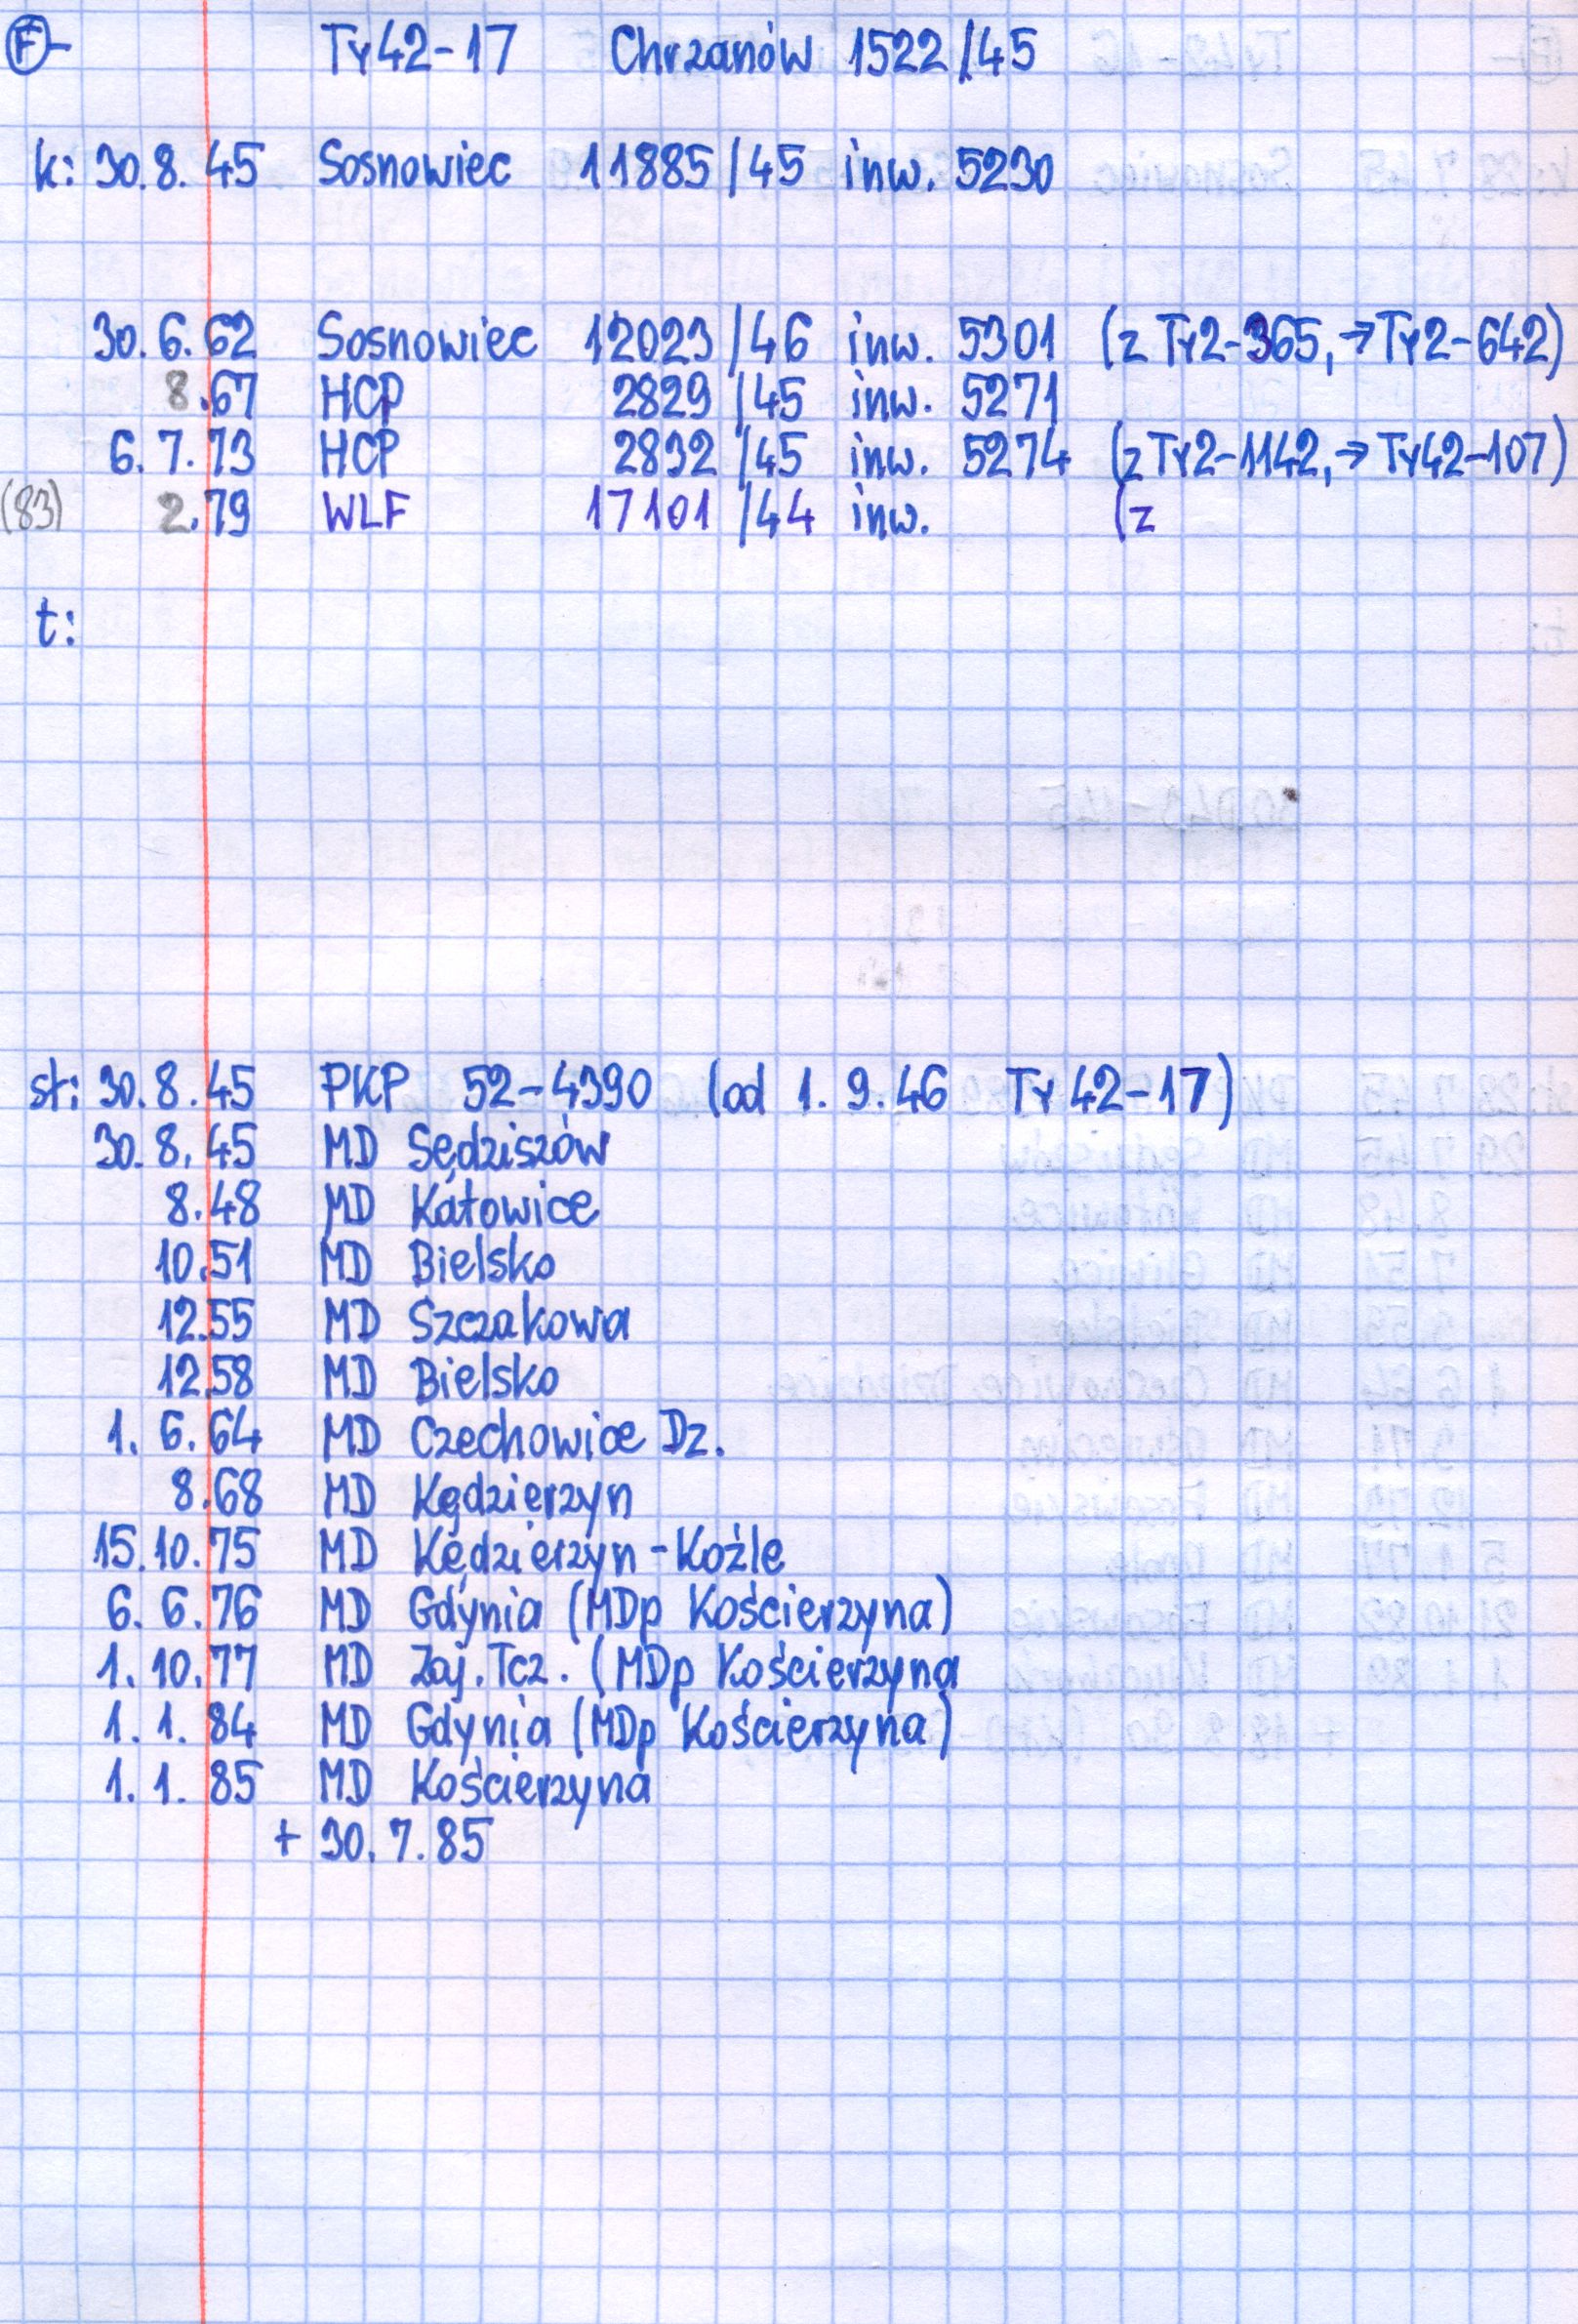 F- Ty42-17 Chrzanów 1522/45
k: 30.8.45 Sosnowiec 11885/45 inw. 5230
30.6.62 Sosnowiec 12023/46 inw. 5301 (z Ty2-365, → Ty2-642)
8.67 HCP 2829/45 inw. 5271
6.7.73 HCP 2832/45 inw. 5274 (z Ty2-1142, → Ty42-107)
(83) 2.79 WLF 17101/44 inw. (z
t:
st: 30.8.45 PKP 52-4390 (od 1.9.46 Ty42-17)
30.8.45 MD Sędziszów
8.48 MD Katowice
10.51 MD Bielsko
12.55 MD Szczakowa
12.58 MD Bielsko
1.6.64 MD Czechowice Dz.
8.68 MD Kędzierzyn
15.10.75 MD Kędzierzyn-Koźle
6.6.76 MD Gdynia (MDp Kościerzyna)
1.10.77 MD Zaj.Tcz. (MDp Kościerzyna
1.1.84 MD Gdynia (MDp Kościerzyna)
1.1.85 MD Kościerzyna
+ 30.7.85